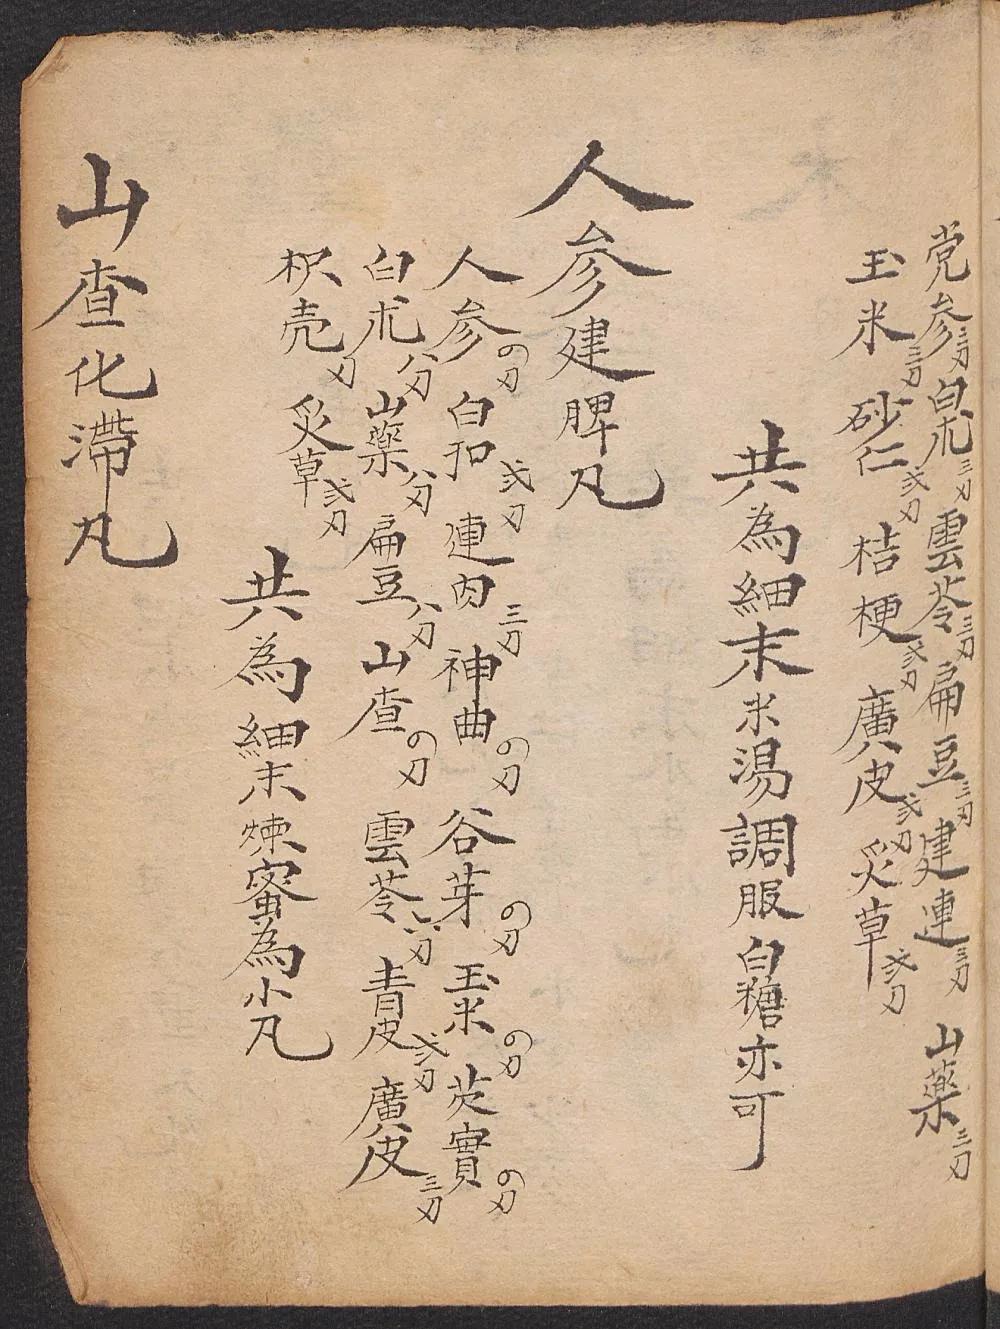 党参三刃白朮三刃雲苓三刃扁豆三刃建連三刃山藥三刃
玉米三刃砂仁弍刃桔梗弍刃廣皮弍刃炙草弍刃
共為細末米湯調服白糖亦可
人参建脾凡
人参の刃白扣弍刃連肉三刃神曲の刃谷芽の刃玉米の刃芡實の刃
白朮八刃山藥八刃扁豆八刃山查の刃雲苓六刃青皮弍刃廣皮三刃
枳壳刃炙草弍刃
共為細末煉蜜為小凡
山查化滯凡